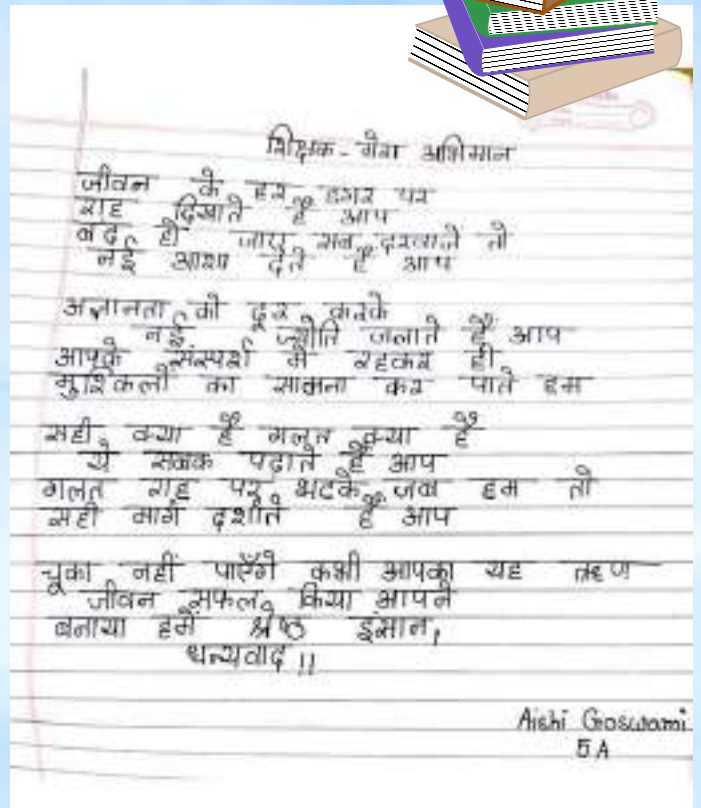 शिक्षक - मेरा अभिमान
जीवन के हर डगर पर
राह दिखाते हैं आप
बंद हो जाए सब दरवाजे तो
नई आशा देते हैं आप
अज्ञानता को दूर करके
नई ज्योति जलाते हैं आप
आपके संस्पर्श में रहकर ही
मुश्किलों का सामना कर पाते हम
सही क्या है गलत क्या है
ये सबक पढ़ाते हैं आप
गलत राह पर भटके जब हम तो
सही मार्ग दर्शाते हैं आप
चूका नहीं पाएँगे कभी आपका यह ऋण
जीवन सफल किया आपने
बनाया हमें श्रेष्ठ इंसान,
धन्यवाद !!
Aishi Goswami
5A